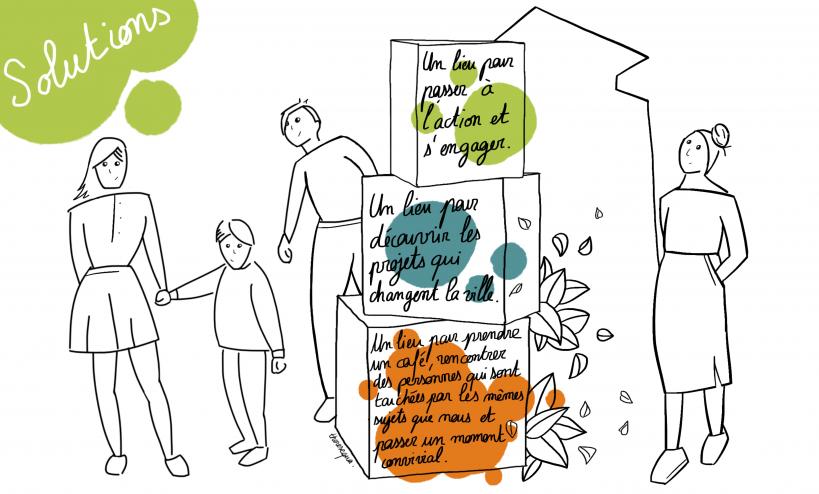 Solutions
Un lieu pour
passer à
l'action et
s'engager.
Un lieu pour
découvrir les
projets qui
changent la ville.
Un lieu pour prendre
un café, rencontrer
des personnes qui sont
touchées par les mêmes
sujets que nous et
passer un moment
convivial.